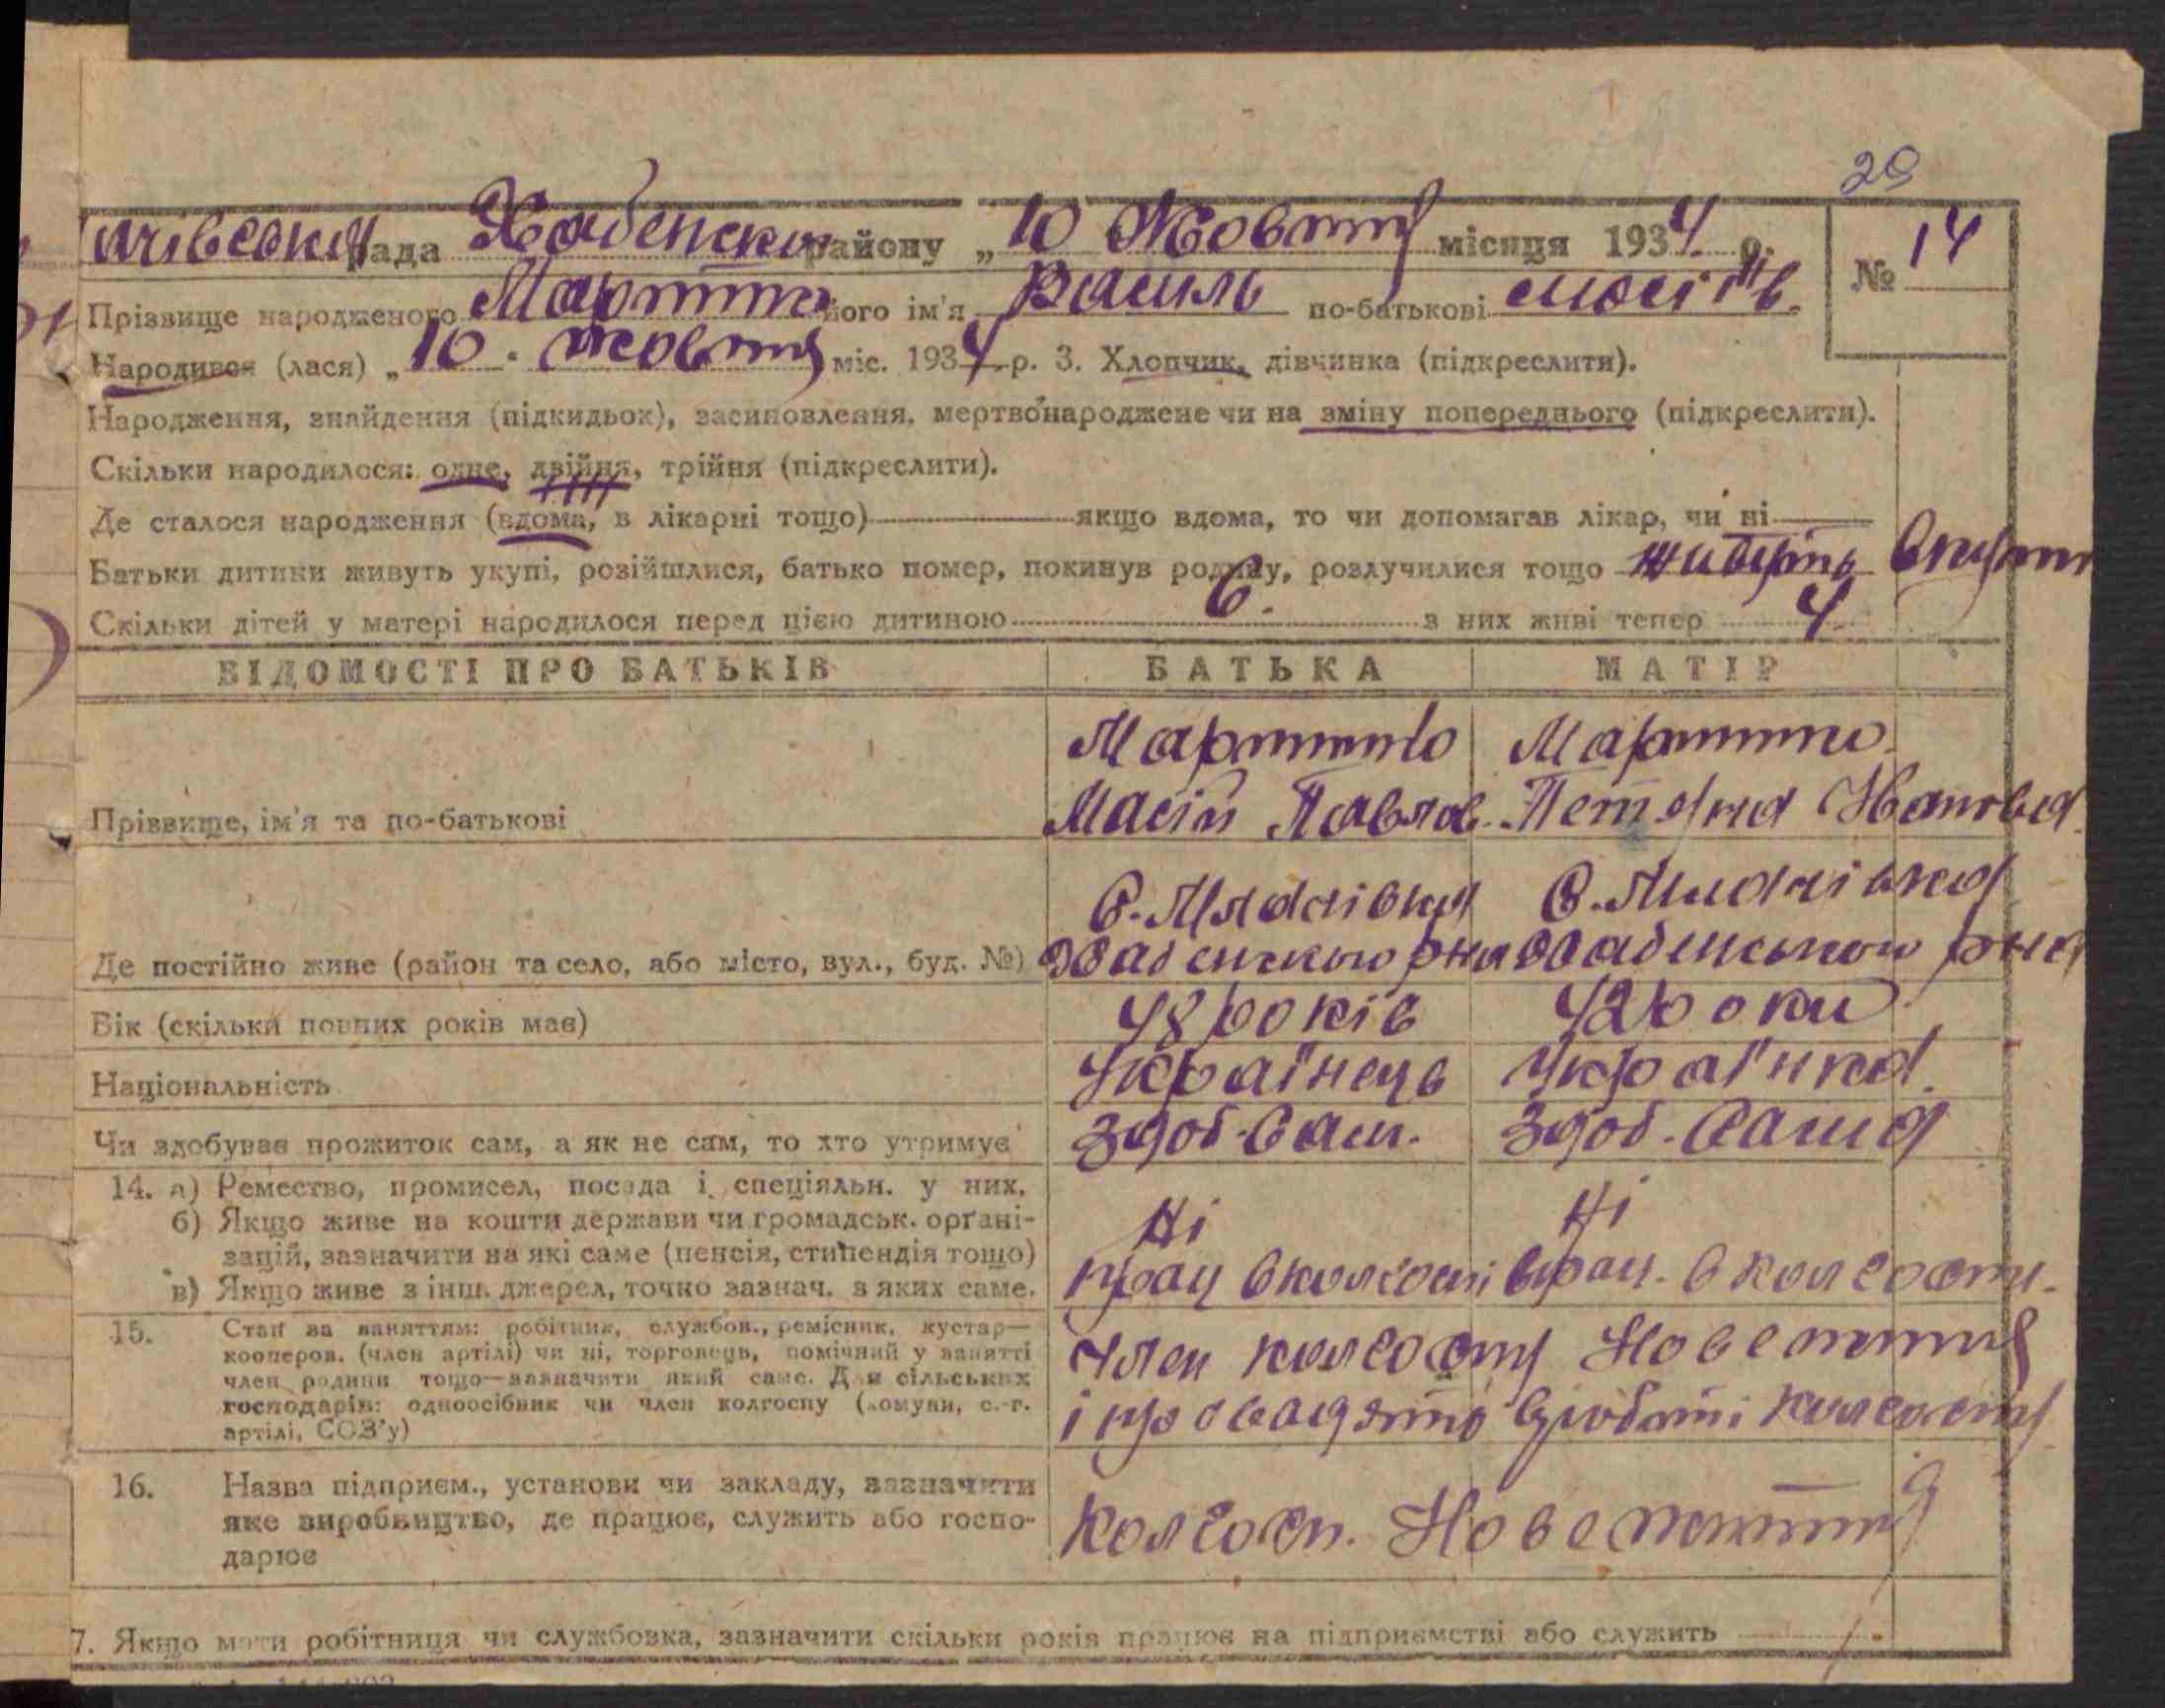 20
рада Хабенского району „ 10 Жовтня місяця 1934 р.
№ 14
Прізвище народженого його ім'я Василь по-батькові
Народився (лася) „ 10 " жовтня міс. 1934 р. 3. Хлопчик, дівчинка (підкреслити).
Народження, знайдення (підкидьок), засиновлення, мертвонароджене чи на зміну попереднього (підкреслити).
Скільки народилося: одне, двійня, трійня (підкреслити).
Де сталося народження (вдома, в лікарні тощо) якщо вдома, то чи допомагав лікар, чи ні
Батьки дитини живуть укупі, розійшлися, батько помер, покинув родину, розлучилися тощо живуть вкупі
Скільки дітей у матері народилося перед цією дитиною 6. з них живі тепер 4
ВІДОМОСТІ ПРО БАТЬКІВ БАТЬКА МАТІР
Прізвище, ім'я та по-батькові Павлов.
Де постійно живе (район та село, або місто, вул., буд. №)
Вік (скільки повних років має) 48 років 42 роки
Національність Українець Українка.
Чи здобуває прожиток сам, а як не сам, то хто утримує Здоб. Сам. Здоб. Сама
14. а) Ремество, промисел, посада і спеціяльн. у них, Ні Ні
б) Якщо живе на кошти держави чи громадськ. органі-
зацій, зазначити на які саме (пенсія, стипендія тощо)
в) Якщо живе з інш. джерел, точно зазнач. з яких саме. прац в колгоспі прац. в колгоспі.
15. Стан за заняттям: робітник, службов., ремісник, кустар—
кооперов. (член артілі) чи ні, торговець, помічний у занятті
член родини тощо—зазначити який саме. Для сільських
господарів: одноосібник чи член колгоспу (комуни, с.-г.
артілі, СОЗ'у)
Член колгоспу Нове життя
16. Назва підприєм., установи чи закладу, зазначити
яке виробництво, де працює, служить або госпо-
дарює
Колгосп. Нове життя
7. Якщо мати робітниця чи службовка, зазначити скільки років працює на підприємстві або служить